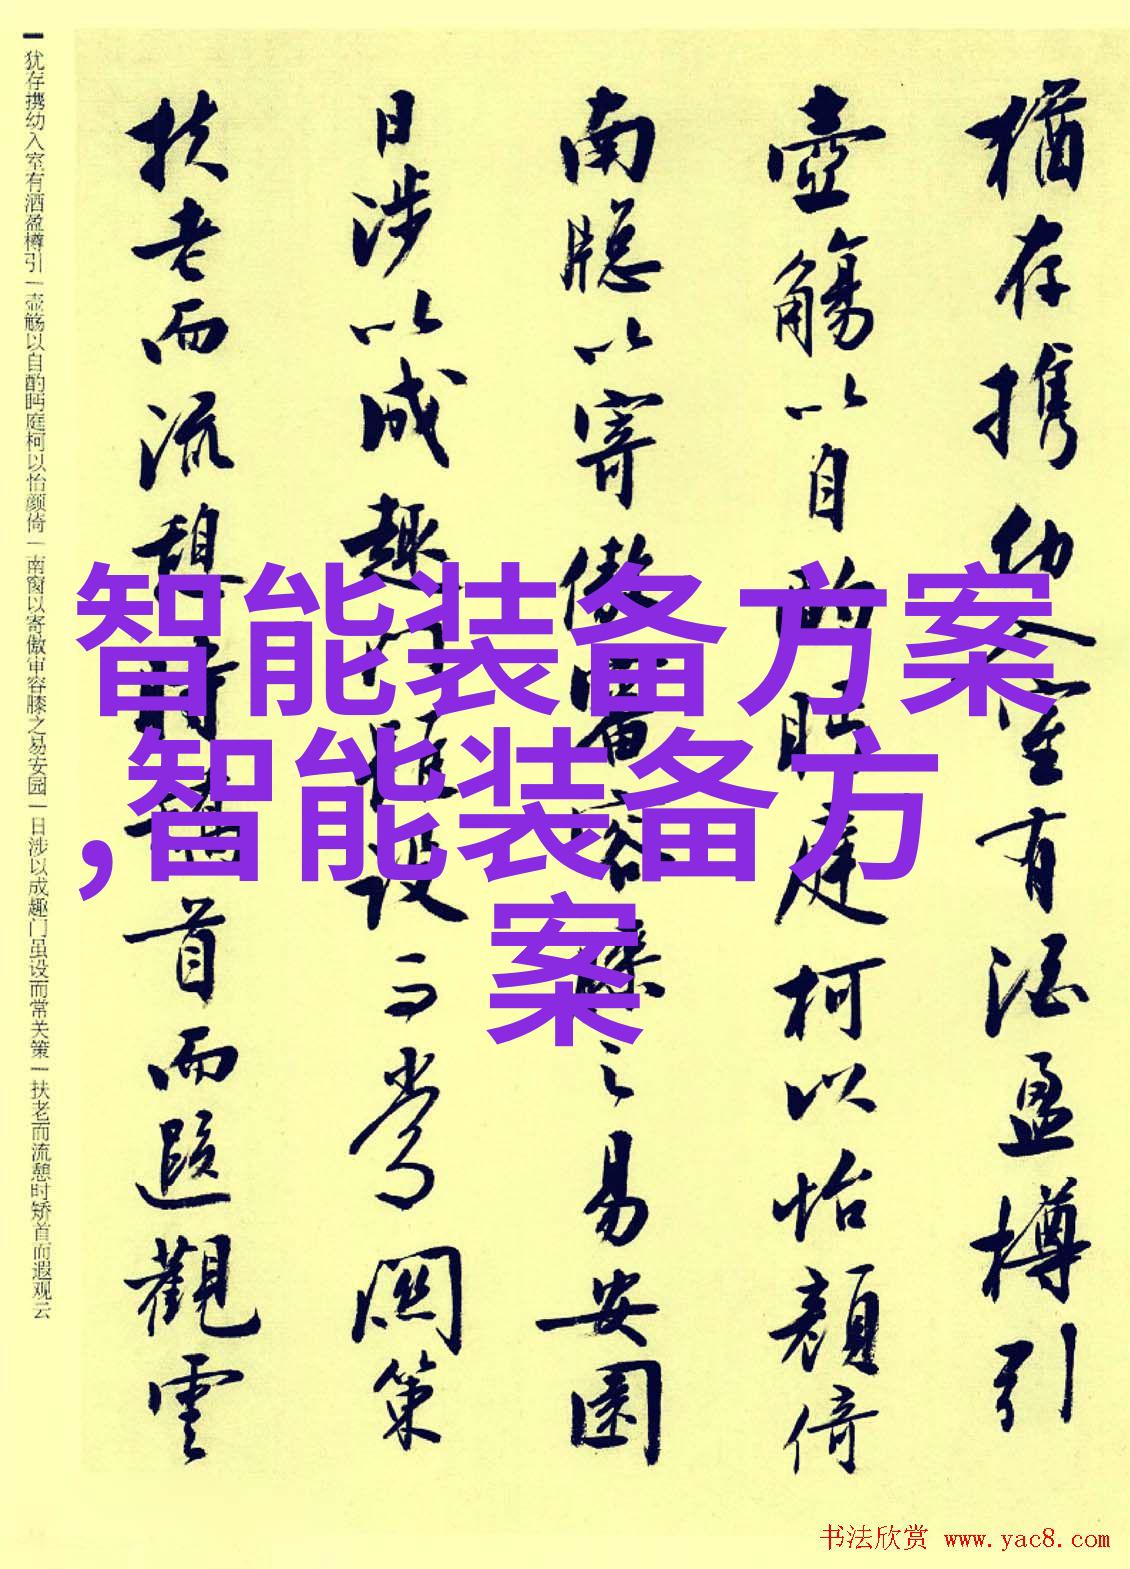 猶存携幼入室有酒盈樽引
壺觴以自酌眄庭柯以怡顔倚
南牕以寄傲審容膝之易安園
日涉以成趣門雖設而常関策
扶老而流憩時矯首而遐觀雲
犹存携幼入室有酒盈樽引 | 壶觞以自酌眄庭柯以怡颜倚 | 南窗以寄傲审容膝之易安园 | 日涉以成趣门虽设而常关策 | 扶老而流憩时矫首而遐观云
智能装备方案
,智能装备方
案
书法欣赏 www.yac8.com